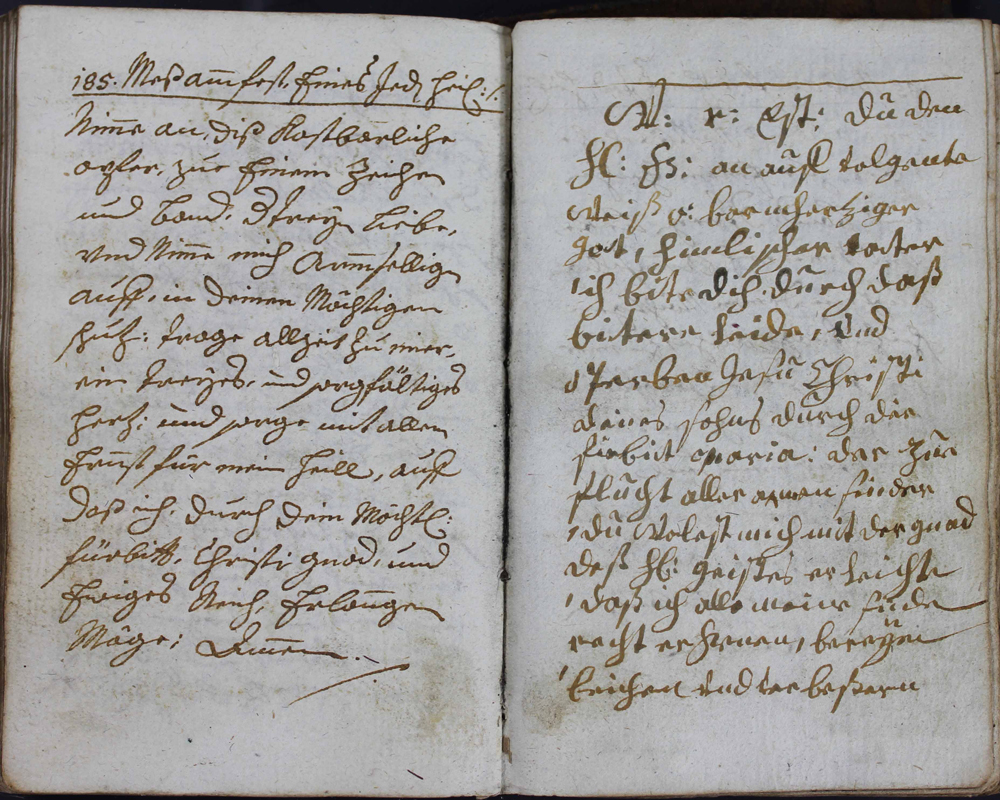 185. Meß am̄ fest Eines Jed. Heil:
Nim̄e an, diß Kostbarliche
opfer, zur Einem Zeichen
und band, Dreÿ Liebe,
vnd Nim̄e mich Armselligen
auff, in deinen Mächtigen
schuz: trage allzeit zu mier,
ein treÿes, und sorgfältiges
Herz: und sorge mit allem
Ernst für mein Heill, auff
daß ich, durch dein Mächtl:
fürbitt, Christi gnad, und
Ewiges Reich, Erlangen
Mäge: Amen.
du den
an auff volgente
Weiß o: barmhertziger
got, himlischer vatter
ich bite dich durch daß
bittere leiden, vnd
sterben Jesu Christi
deines sohns durch die
firbit maria: der zue
flucht aller armen sinder
du wolest mich mit der gnad
deß Hl: geistes erleichte
daß ich alle meine sinde
recht erkenen, bereÿen
beichen vnd verbeßern